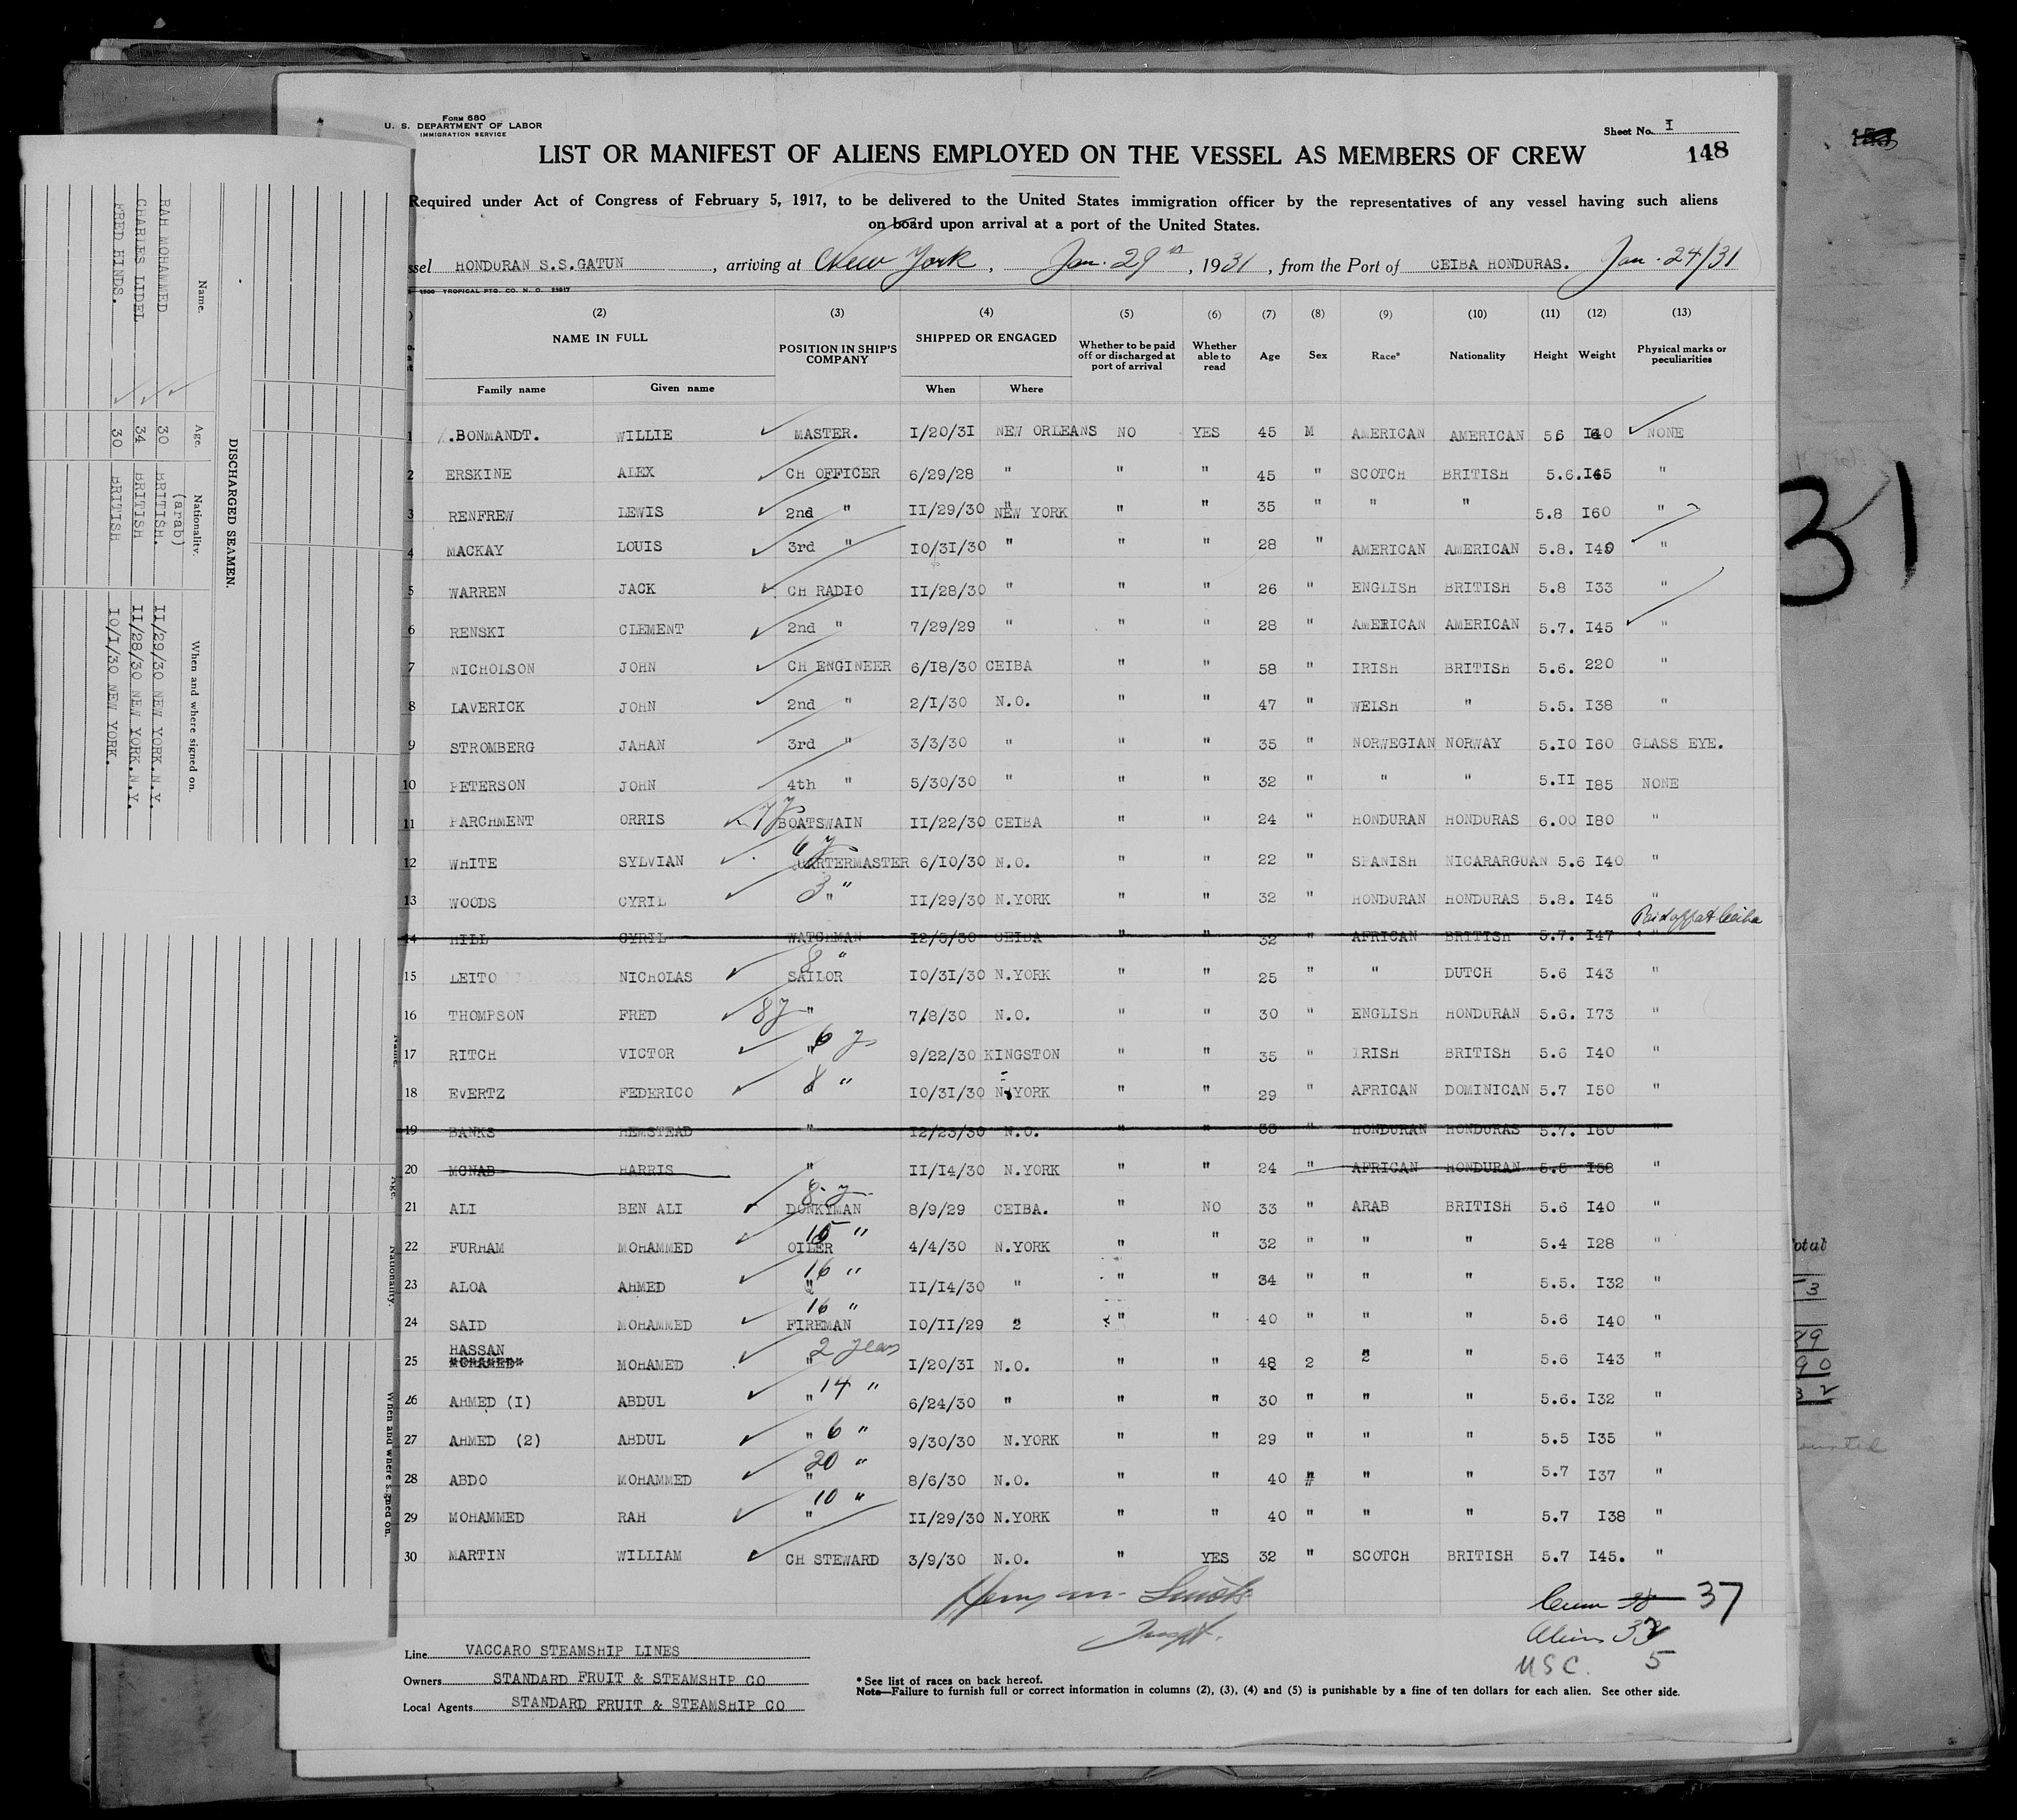 FORM 680
U. S. DEPARTMENT OF LABOR
IMMIGRATION SERVICE
Sheet No. I
148
LIST OR MANIFEST OF ALIENS EMPLOYED ON THE VESSEL AS MEMBERS OF CREW
Required under Act of Congress of February 5, 1917, to be delivered to the United States immigration officer by the representatives of any vessel having such aliens
on board upon arrival at a port of the United States.
ssel HONDURAN S.S.GATUN, arriving at New York, Jan. 29th, 1931, from the Port of CEIBA HONDURAS. Jan. 24/31
TROPICAL PTG. CO. N. O.
(2) (3) (4) (5) (6) (7) (8) (9) (10) (11) (12) (13)
NAME IN FULL POSITION IN SHIP'S COMPANY SHIPPED OR ENGAGED Whether to be paid off or discharged at port of arrival Whether able to read Age Sex Race* Nationality Height Weight Physical marks or peculiarities
Family name Given name When Where
1 BONMANDT. WILLIE MASTER. I/20/3I NEW ORLEANS NO YES 45 M AMERICAN AMERICAN 56 I40 NONE
2 ERSKINE ALEX CH OFFICER 6/29/28 " " " 45 " SCOTCH BRITISH 5.6. I45 "
3 RENFREW LEWIS 2nd " II/29/30 NEW YORK " " 35 " " " 5.8 I60 "
4 MACKAY LOUIS 3rd " I0/3I/30 " " " 28 " AMERICAN AMERICAN 5.8. I40 "
5 WARREN JACK CH RADIO II/28/30 " " " 26 " ENGLISH BRITISH 5.8 I33 "
6 RENSKI CLEMENT 2nd " 7/29/29 " " " 28 " AMERICAN AMERICAN 5.7. I45 "
7 NICHOLSON JOHN CH ENGINEER 6/I8/30 CEIBA " " 58 " IRISH BRITISH 5.6. 220 "
8 LAVERICK JOHN 2nd " 2/I/30 N.O. " " 47 " WELSH " 5.5. I38 "
9 STROMBERG JAHAN 3rd " 3/3/30 " " " 35 " NORWEGIAN NORWAY 5.I0 I60 GLASS EYE.
10 PETERSON JOHN 4th " 5/30/30 " " " 32 " " " 5.II I85 NONE
11 PARCHMENT ORRIS 7 y BOATSWAIN II/22/30 CEIBA " " 24 " HONDURAN HONDURAS 6.00 I80 "
12 WHITE SYLVIAN 6 y QUARTERMASTER 6/I0/30 N.O. " " 22 " SPANISH NICARARGUAN 5.6 I40 "
13 WOODS CYRIL 3 " " II/29/30 N.YORK " " 32 " HONDURAN HONDURAS 5.8. I45 "
Paid off at Ceiba
14 HILL CYRIL WATCHMAN I2/5/30 CEIBA " " 32 " AFRICAN BRITISH 5.7. I47 "
15 LEITO NICHOLAS 8 " SAILOR I0/3I/30 N.YORK " " 25 " " DUTCH 5.6 I43 "
16 THOMPSON FRED 8 y " 7/8/30 N.O. " " 30 " ENGLISH HONDURAN 5.6. I73 "
17 RITCH VICTOR " 6 y 9/22/30 KINGSTON " " 35 " IRISH BRITISH 5.6 I40 "
18 EVERTZ FEDERICO 8 " I0/3I/30 N.YORK " " 29 " AFRICAN DOMINICAN 5.7 I50 "
19 BANKS HEMSTEAD " I2/23/30 N.O. " " 33 " HONDURAN HONDURAS 5.7. I60
20 MCNAB HARRIS " II/I4/30 N.YORK " " 24 " AFRICAN HONDURAN 5.5 I58 "
21 ALI BEN ALI 8 y DONKYMAN 8/9/29 CEIBA. " NO 33 " ARAB BRITISH 5.6 I40 "
22 FURHAM MOHAMMED 15 " OILER 4/4/30 N.YORK " " 32 " " " 5.4 I28 "
23 ALOA AHMED 16 " " II/I4/30 " " " 34 " " " 5.5. I32 "
24 SAID MOHAMMED 16 " FIREMAN I0/II/29 2 " " 40 " " " 5.6 I40 "
HASSAN
25 MOHAMED MOHAMED " 2 years I/20/3I N.O. " " 48 2 2 " 5.6 I43 "
26 AHMED (I) ABDUL " 14 " 6/24/30 " " " 30 " " " 5.6. I32 "
27 AHMED (2) ABDUL " 6 " 9/30/30 N.YORK " " 29 " " " 5.5 I35 "
28 ABDO MOHAMMED 20 " " 8/6/30 N.O. " " 40 " " " 5.7 I37 "
29 MOHAMMED RAH 10 " " II/29/30 N.YORK " " 40 " " " 5.7 I38 "
30 MARTIN WILLIAM CH STEWARD 3/9/30 N.O. " YES 32 " SCOTCH BRITISH 5.7 I45. "
37
Aliens 32
USC. 5
Line VACCARO STEAMSHIP LINES
Owners STANDARD FRUIT & STEAMSHIP CO
Local Agents STANDARD FRUIT & STEAMSHIP CO
* See list of races on back hereof.
Note—Failure to furnish full or correct information in columns (2), (3), (4) and (5) is punishable by a fine of ten dollars for each alien. See other side.
DISCHARGED SEAMEN.
Name. Age. Nationality. When and where signed on.
RAH MOHAMMED 30 BRITISH. (arab) II/29/30 NEW YORK.N.Y.
CHARLES LIDEL 34 BRITISH II/28/30 NEW YORK.N.Y.
FRED HINDS. 30 BRITISH I0/I/30 NEW YORK.
Name. Age. Nationality. When and where signed on.
31
otal
3
90